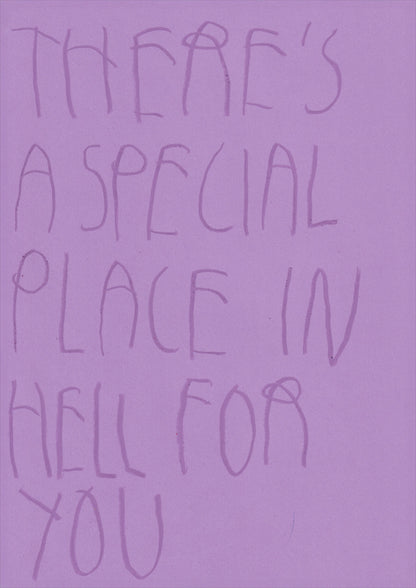 THERE'S
A SPECIAL
PLACE IN
HELL FOR
YOU